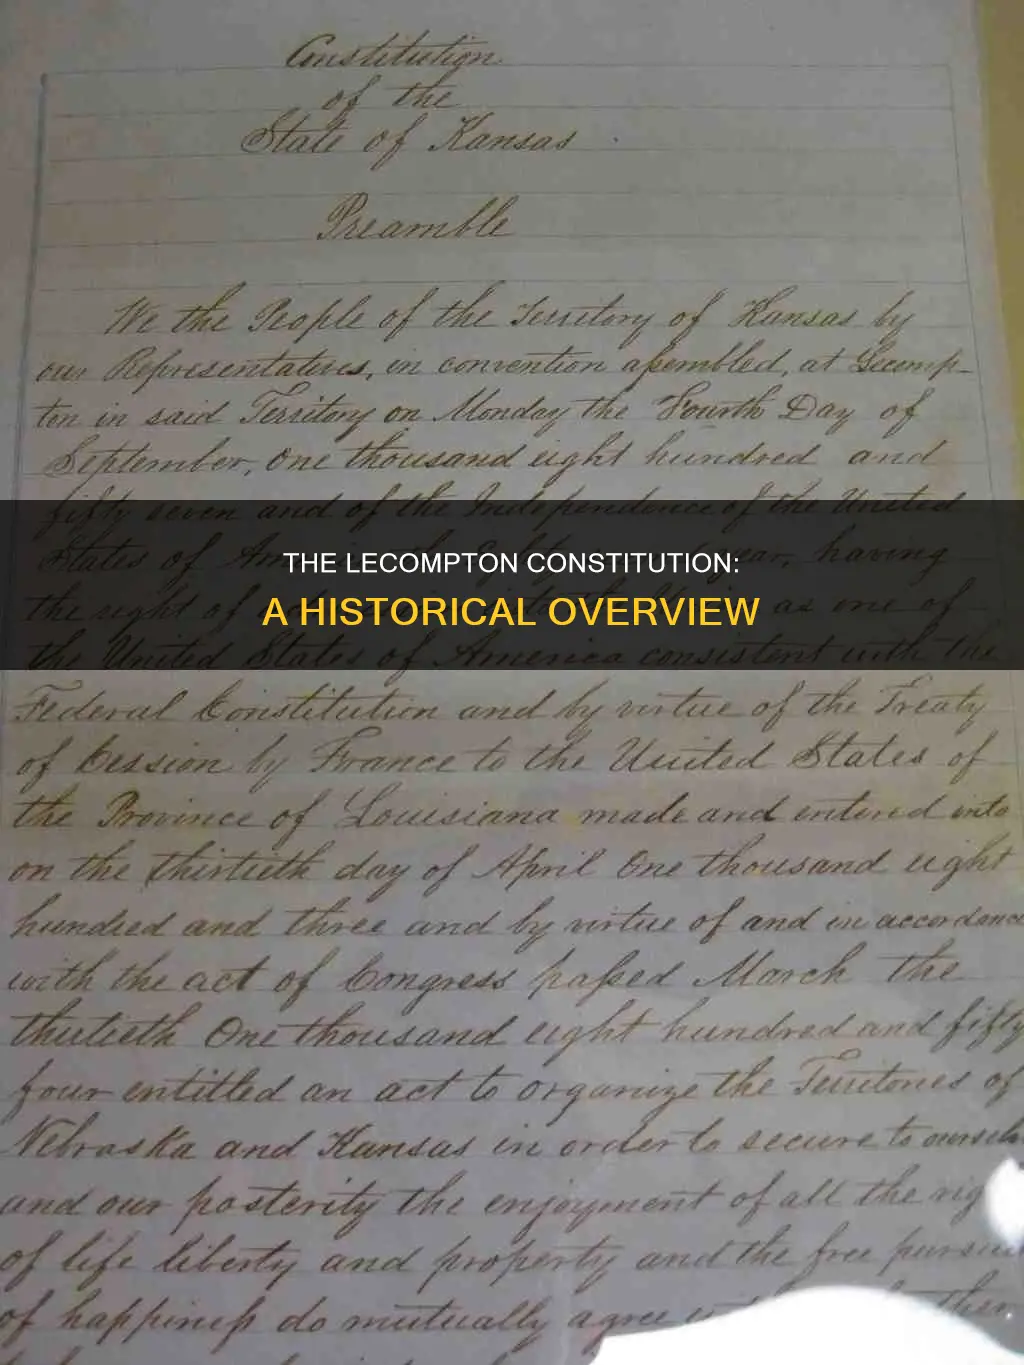 Constitution
of the
State of Kansas
Preamble
We the People of the Territory of Kansas by
our Representatives, in convention assembled, at Lecomp-
ton in said Territory on Monday the Fourth Day of
September, One thousand eight hundred and
fifty seven and of the Independence of the United
THE LECOMPTON CONSTITUTION:
States of year, having
A HISTORICAL OVERVIEW
the right of as one of
the United States of America consistent with the
Federal Constitution and by virtue of the Treaty
of Cession by France to the United States of
the Province of Louisiana made and entered into
on the thirtieth day of April One thousand eight
hundred and three and by virtue of and in accordance
with the act of Congress passed March the
thirtieth One thousand eight hundred and fifty
four entitled an act to organize the Territories of
Nebraska and Kansas in order to secure to ourselv
and our posterity the enjoyment of all the rig
of life liberty and property and the free pursui
of happiness do mutually agree